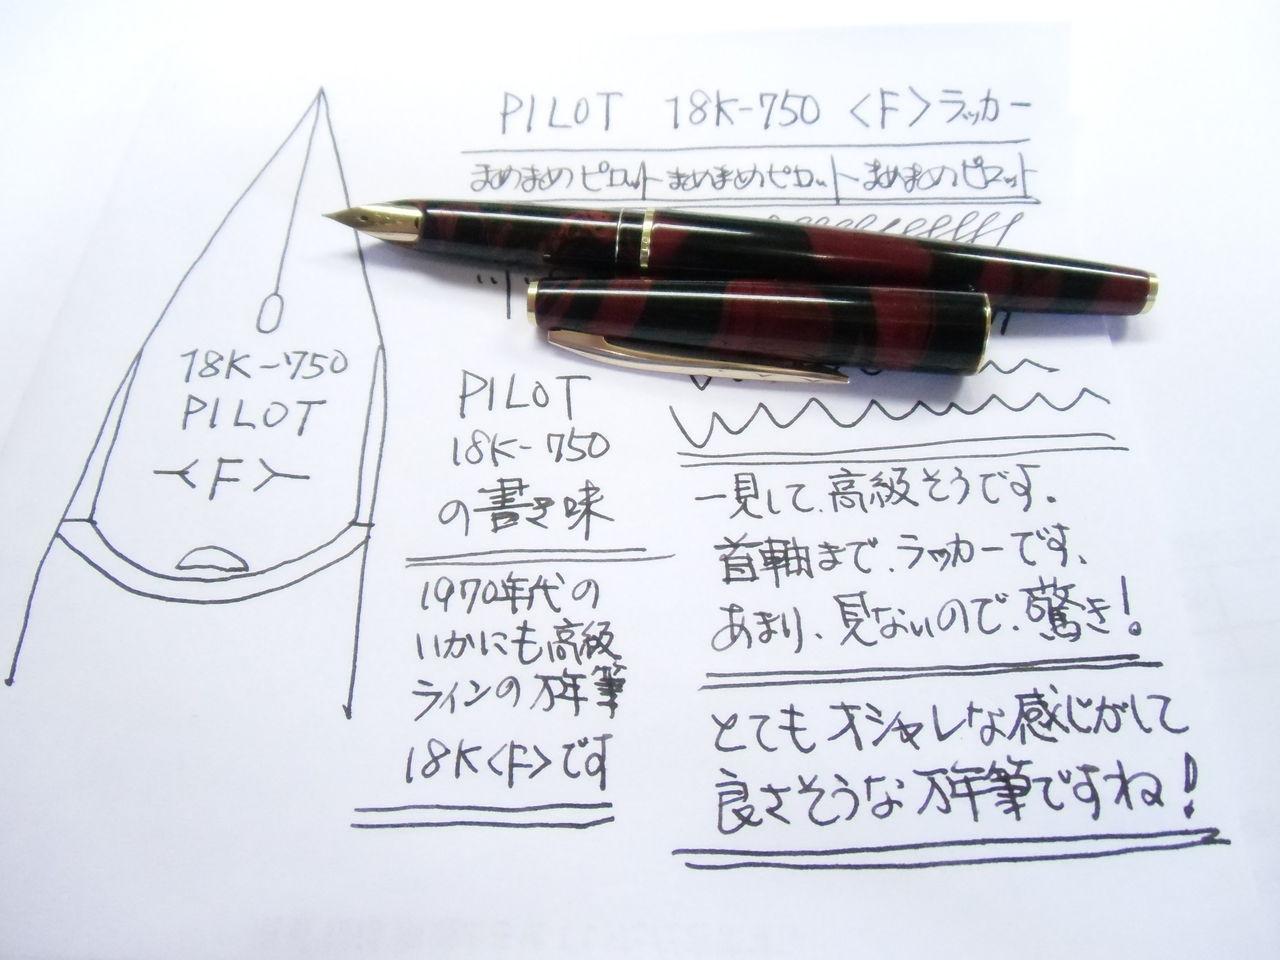 PILOT 18K-750 <F> ラッカー
まめまめのピロット まめまめのピロット まめまめのピロット
18K-750
PILOT
<F>
PILOT
18K-750
の書き味
1970年代の
いかにも高級
ラインの万年筆
18K<F>です
一見して、高級そうです。
首軸まで、ラッカーです、
あまり、見ないので、驚き!
とてもオシャレな感じがして
良さそうな万年筆ですね!